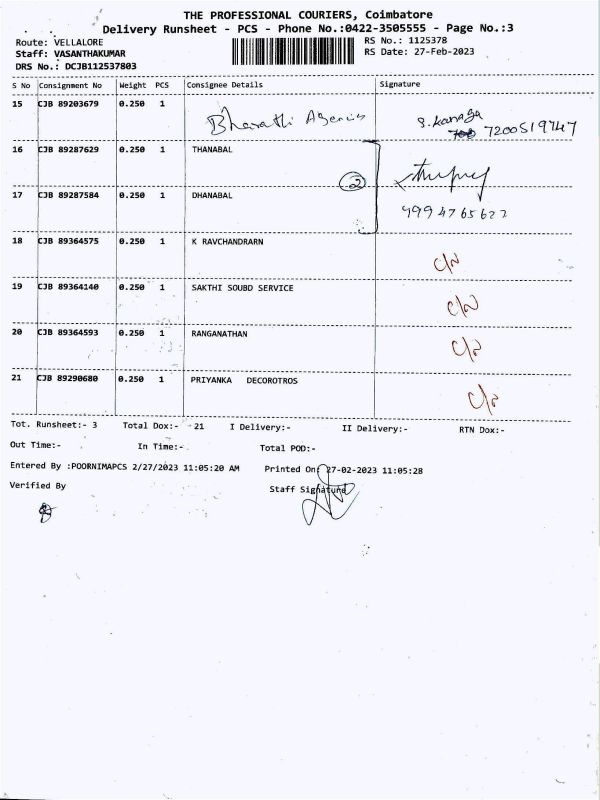 THE PROFESSIONAL COURIERS, Coimbatore
Delivery Runsheet - PCS - Phone No.:0422-3505555 - Page No.:3
Route: VELLALORE RS No.: 1125378
Staff: VASANTHAKUMAR RS Date: 27-Feb-2023
DRS No.: DCJB112537803
S No Consignment No Weight PCS Consignee Details Signature
15 CJB 89203679 0.250 1 Bharathi Agencies S. Kanaga
7200519747
16 CJB 89287629 0.250 1 THANABAL
2
17 CJB 89287584 0.250 1 DHANABAL
9994765622
18 CJB 89364575 0.250 1 K RAVCHANDRARN C/N
19 CJB 89364140 0.250 1 SAKTHI SOUBD SERVICE C/N
20 CJB 89364593 0.250 1 RANGANATHAN C/N
21 CJB 89290680 0.250 1 PRIYANKA DECOROTROS C/N
Tot. Runsheet:- 3 Total Dox:- 21 I Delivery:- II Delivery:- RTN Dox:-
Out Time:- In Time:- Total POD:-
Entered By :POORNIMAPCS 2/27/2023 11:05:20 AM Printed On: 27-02-2023 11:05:28
Verified By Staff Signature